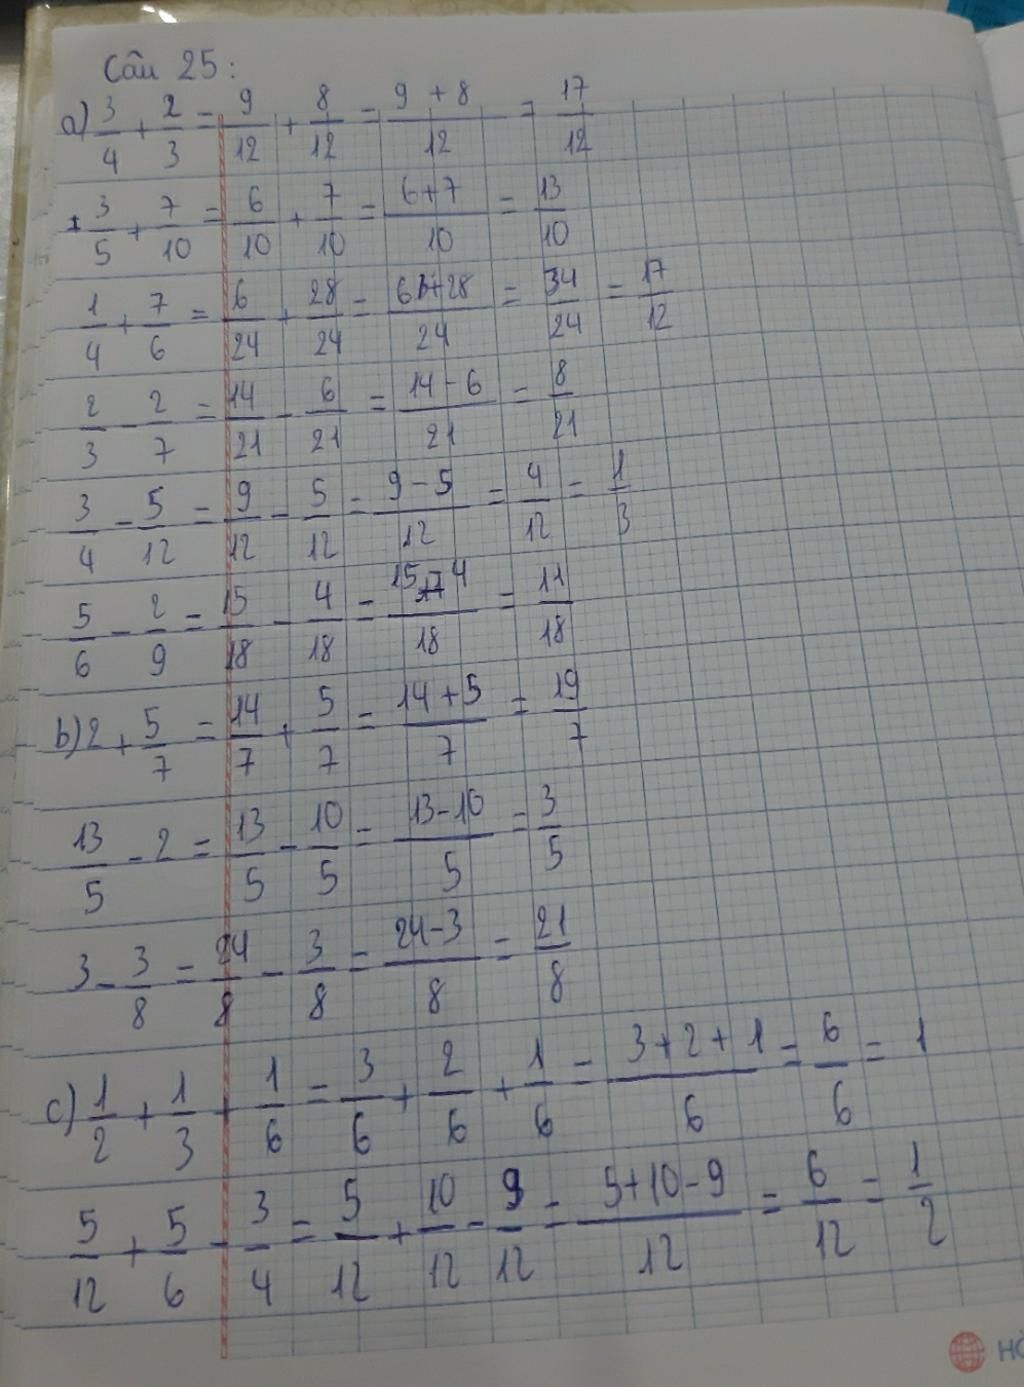 Câu 25:
a) 3/4 + 2/3 = 9/12 + 8/12 = 9 + 8/12 = 17/12
3/5 + 7/10 = 6/10 + 7/10 = 6+7/10 = 13/10
1/4 + 7/6 = 6/24 + 28/24 = 6+28/24 = 34/24 = 17/12
2/3 - 2/7 = 14/21 - 6/21 = 14-6/21 = 8/21
3/4 - 5/12 = 9/12 - 5/12 = 9-5/12 = 4/12 = 1/3
5/6 - 2/9 = 15/18 - 4/18 = 15-4/18 = 11/18
b) 2 + 5/7 = 14/7 + 5/7 = 14+5/7 = 19/7
13/5 - 2 = 13/5 - 10/5 = 13-10/5 = 3/5
3 - 3/8 = 24/8 - 3/8 = 24-3/8 = 21/8
c) 1/2 + 1/3 + 1/6 = 3/6 + 2/6 + 1/6 = 3+2+1/6 = 6/6 = 1
5/12 + 5/6 - 3/4 = 5/12 + 10/12 - 9/12 = 5+10-9/12 = 6/12 = 1/2